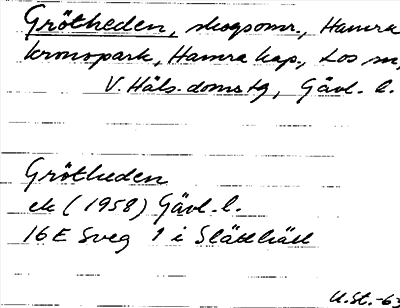 Grötheden, skogsomr., Hamra
kronopark, Hamra kap, Los sn,
V. Häls. domstg, Gävl. l.
Grötheden
ek (1958) Gävl. l.
16E Sveg 1 i Slätthäll
U.St.-63